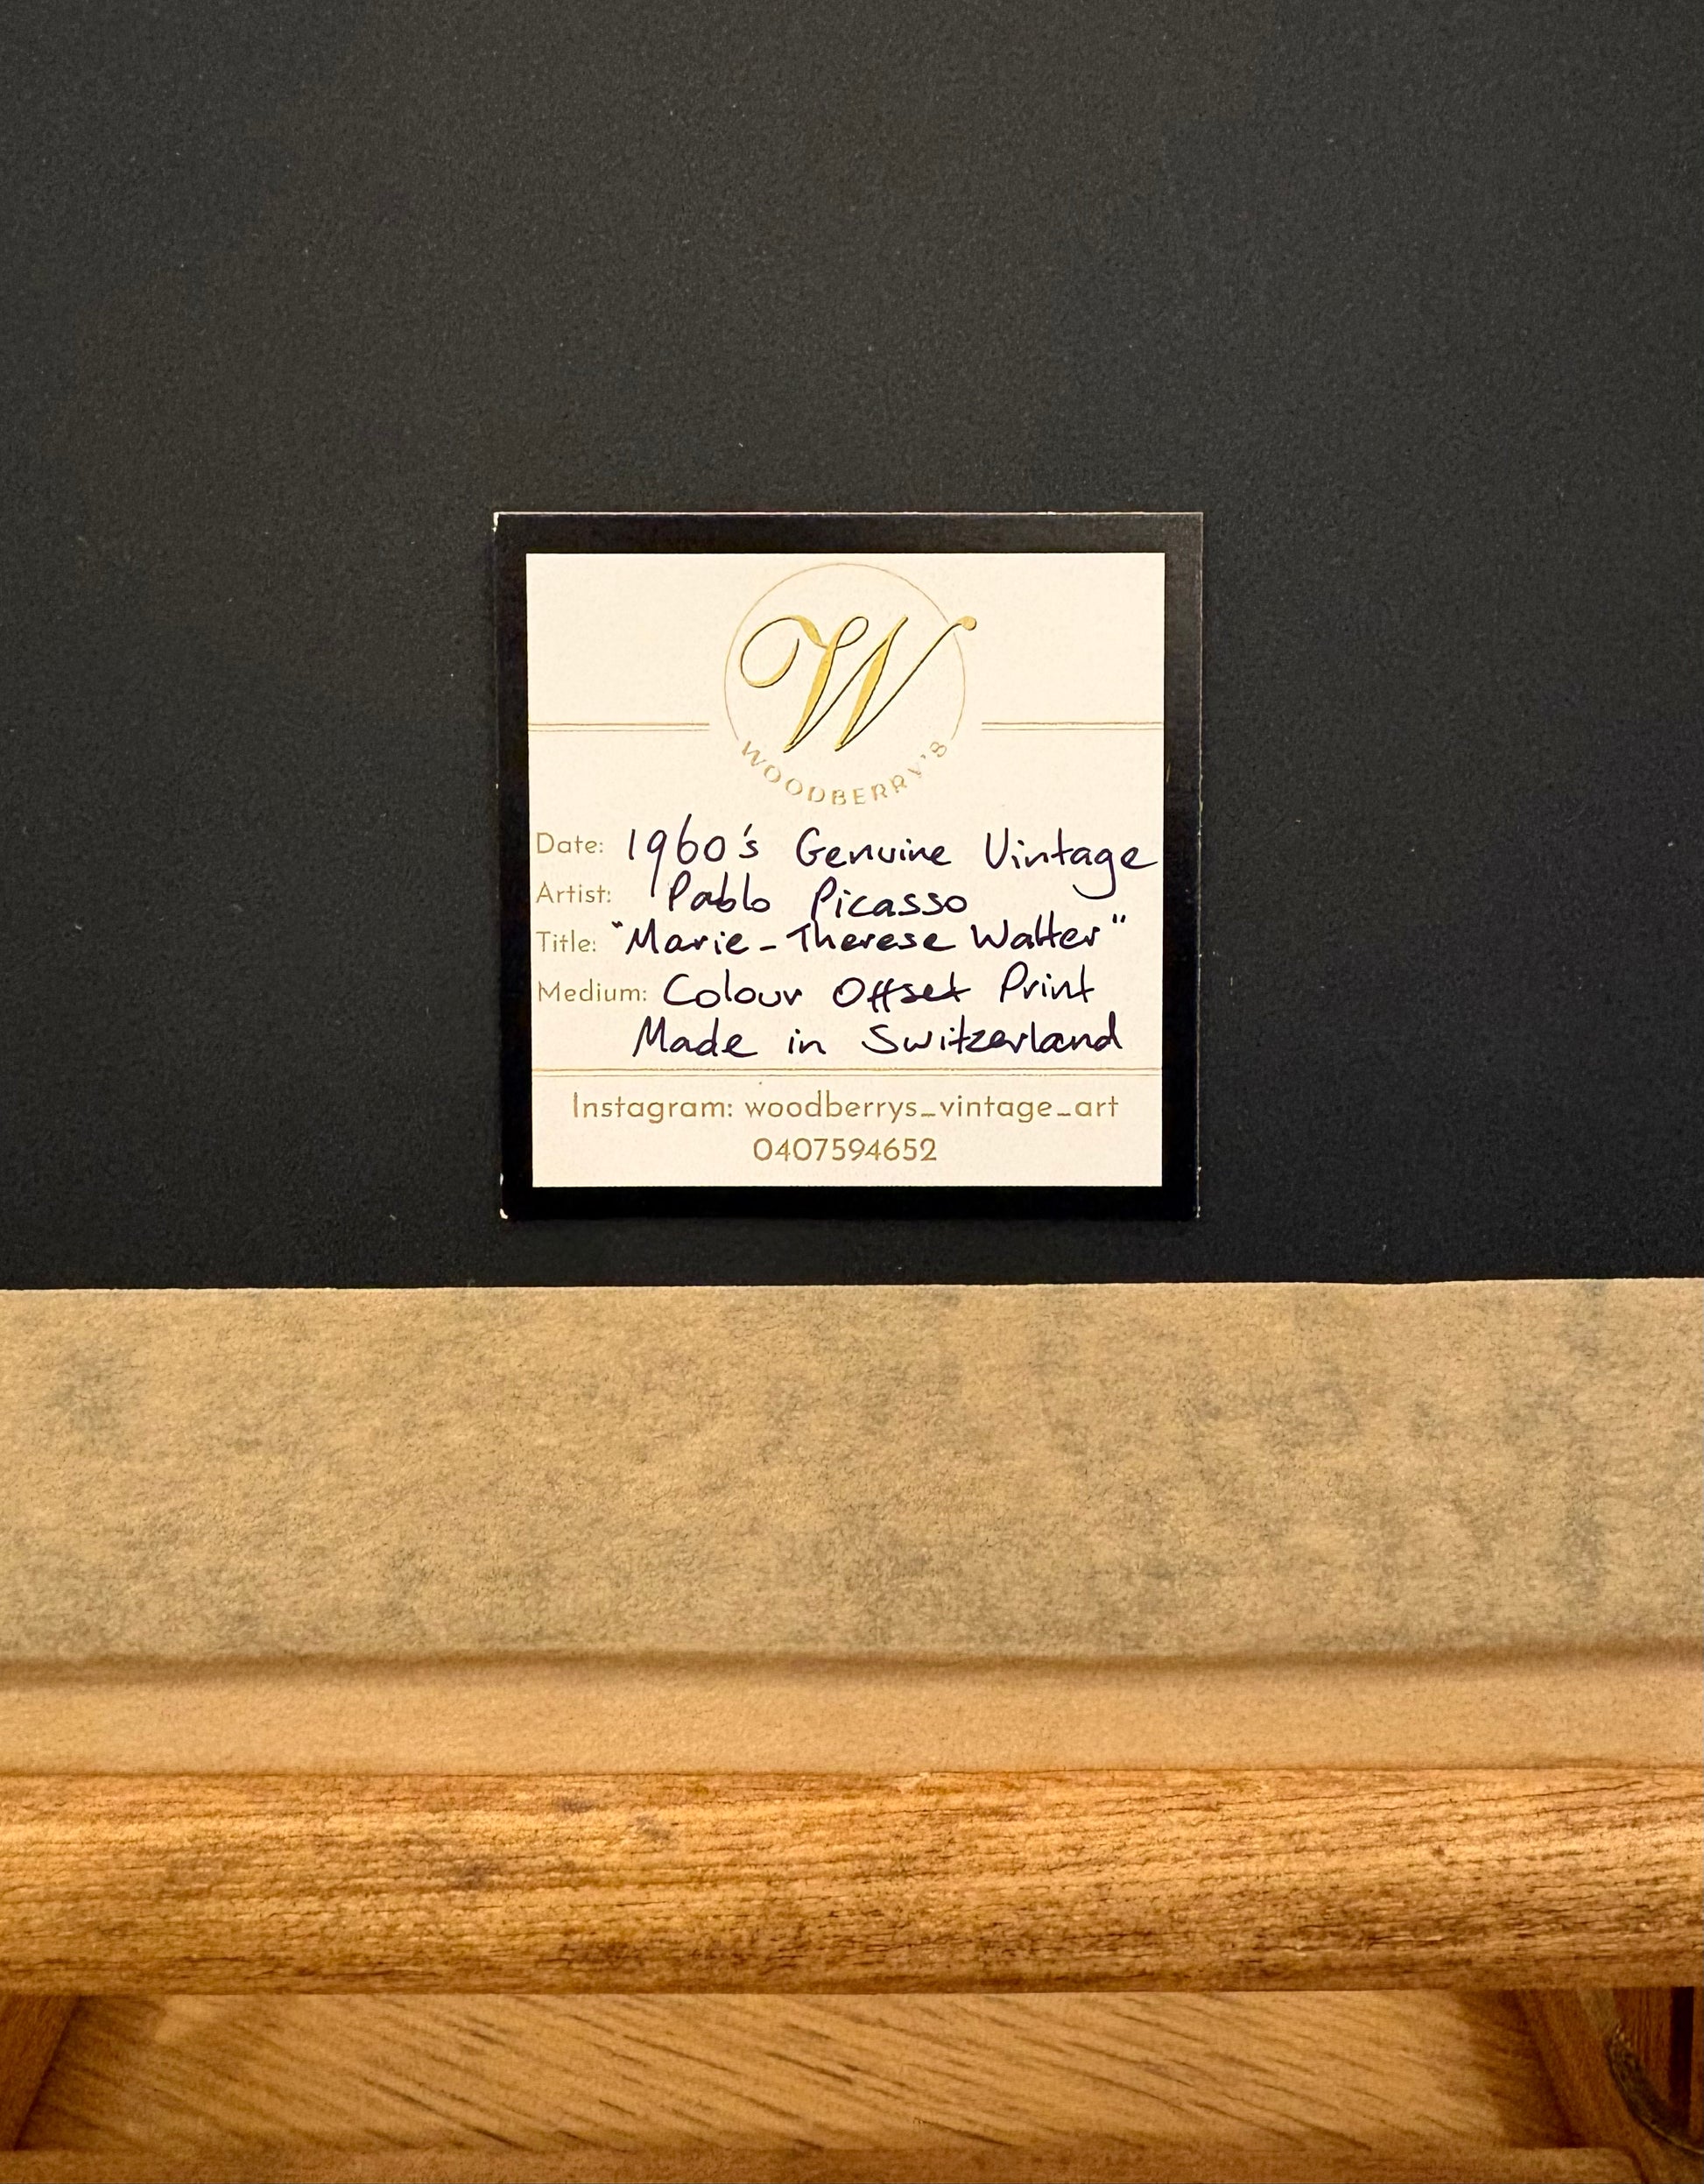 W
WOODBERRY'S
Date: 1960's Genuine Vintage
Artist: Pablo Picasso
Title: "Marie-Therese Walter"
Medium: Colour Offset Print
Made in Switzerland
Instagram: woodberrys_vintage_art
0407594652